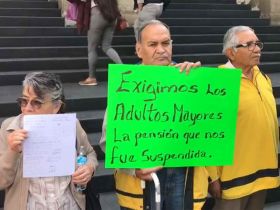 Exigimos Los
Adultos Mayores
La pensión que nos
Fue Suspendida.